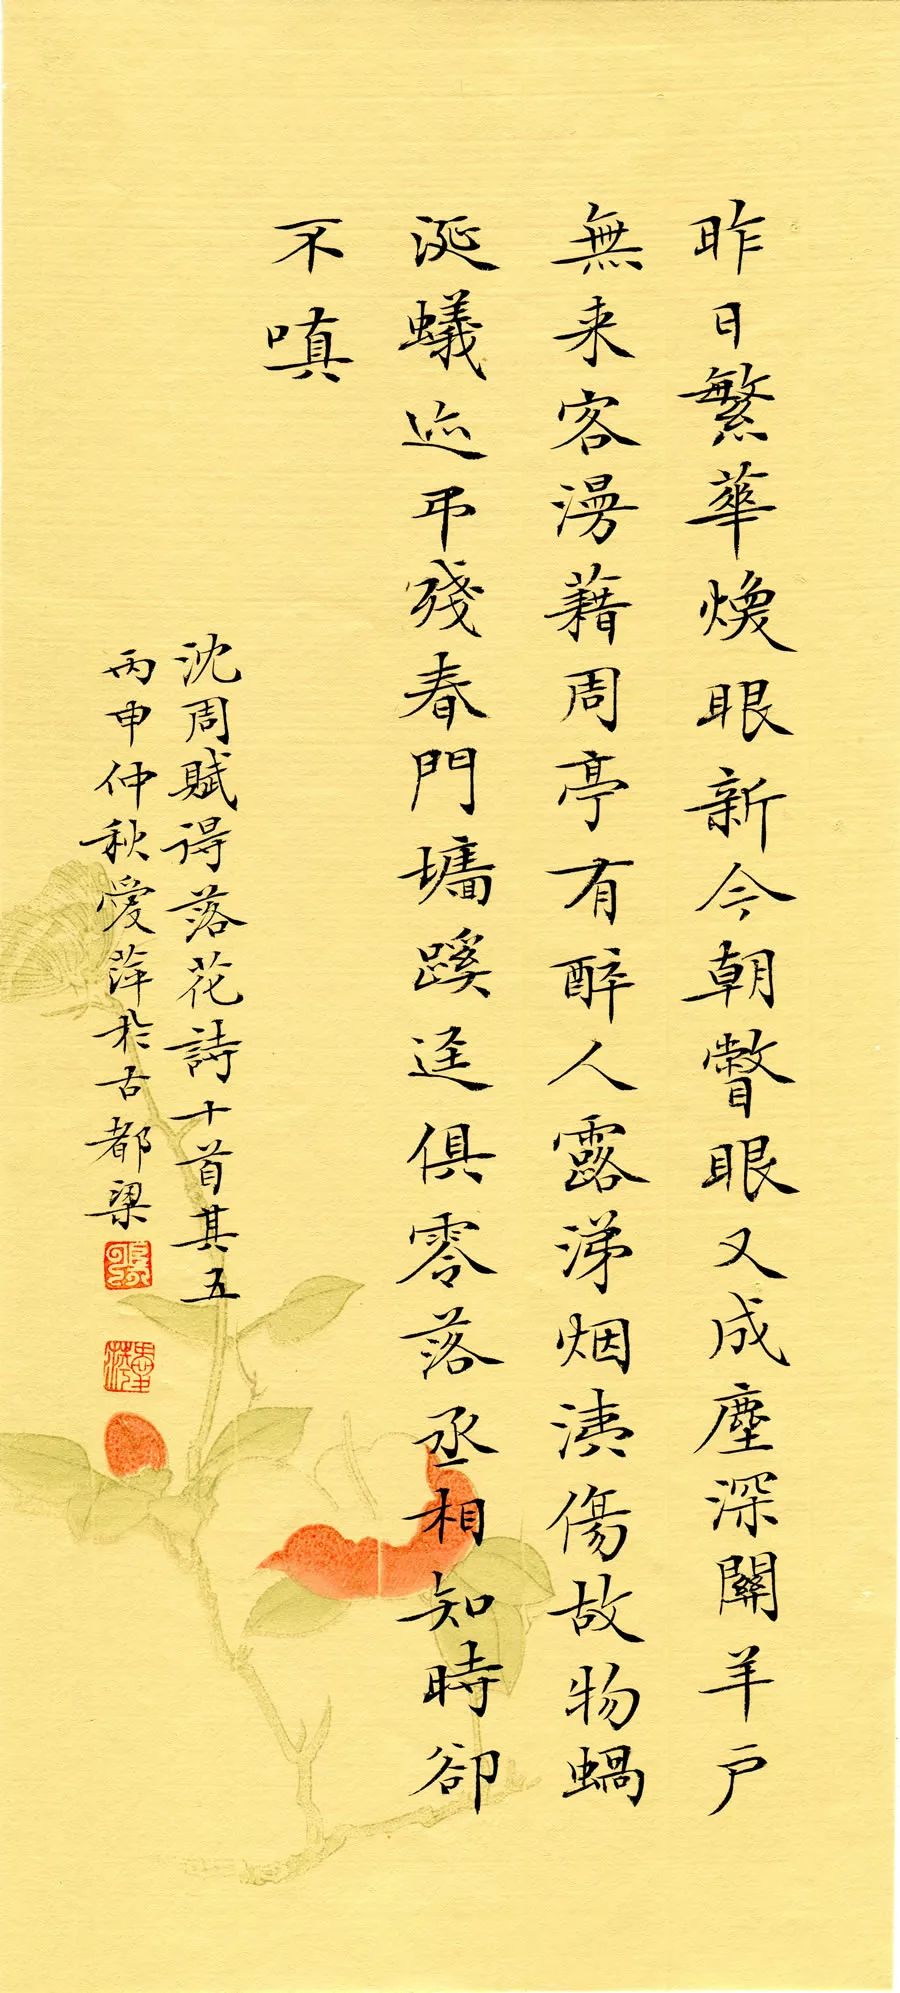 昨日繁華煥眼新今朝瞥眼又成塵深關羊戶
無来客漫藉周亭有醉人露涕烟洟傷故物蝸
涎蟻迹弔殘春門墻蹊迳俱零落丞相知時卻
不嗔
沈周賦得落花詩十首其五
丙申仲秋愛萍於古都梁